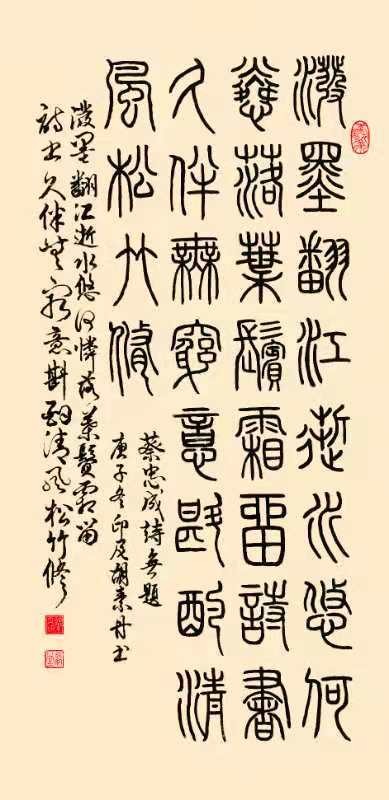 潑墨翻江逝水悠何
憐落葉鬢霜留詩書
久伴無窮意斟酌清
風松竹修
蔡忠成詩無題
庚子冬印尼胡素丹书
潑墨翻江逝水悠何憐落葉鬢霜留
詩书久伴無窮意斟酌清風松竹修